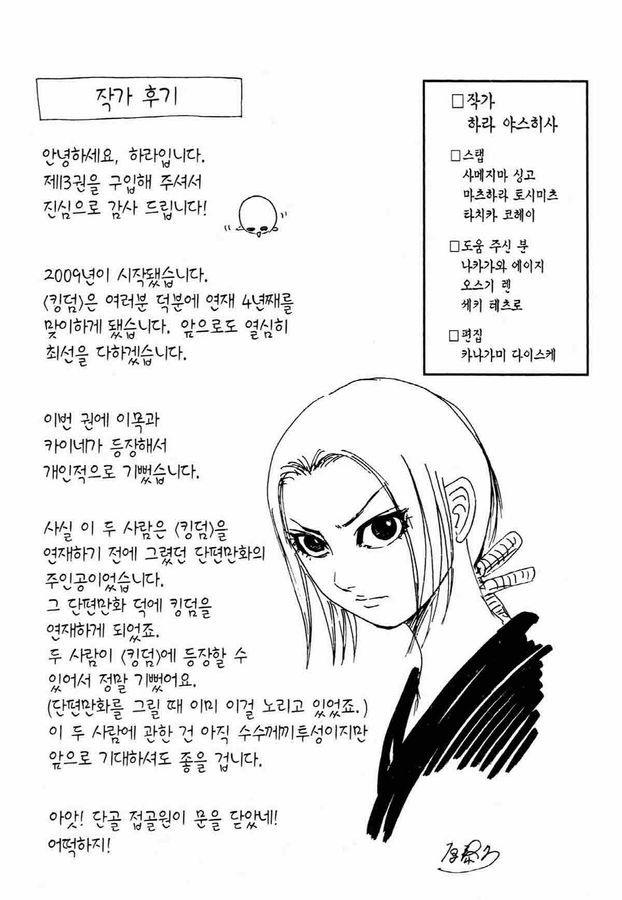 작가 후기
안녕하세요, 하라입니다.
제13권을 구입해 주셔서
진심으로 감사 드립니다!
2009년이 시작됐습니다.
<킹덤>은 여러분 덕분에 연재 4년째를
맞이하게 됐습니다. 앞으로도 열심히
최선을 다하겠습니다.
이번 권에 이목과
카이네가 등장해서
개인적으로 기뻤습니다.
사실 이 두 사람은 <킹덤>을
연재하기 전에 그렸던 단편만화의
주인공이었습니다.
그 단편만화 덕에 킹덤을
연재하게 되었죠.
두 사람이 <킹덤>에 등장할 수
있어서 정말 기뻤어요.
(단편만화를 그릴 때 이미 이걸 노리고 있었죠.)
이 두 사람에 관한 건 아직 수수께끼투성이지만
앞으로 기대하셔도 좋을 겁니다.
아앗! 단골 접골원이 문을 닫았네!
어떡하지!
□작가
하라 야스히사
□스탭
사메지마 싱고
마츠하라 토시미츠
타치카 코헤이
□도움 주신 분
나카가와 에이지
오스기 렌
세키 테츠로
□편집
카나가미 다이스케